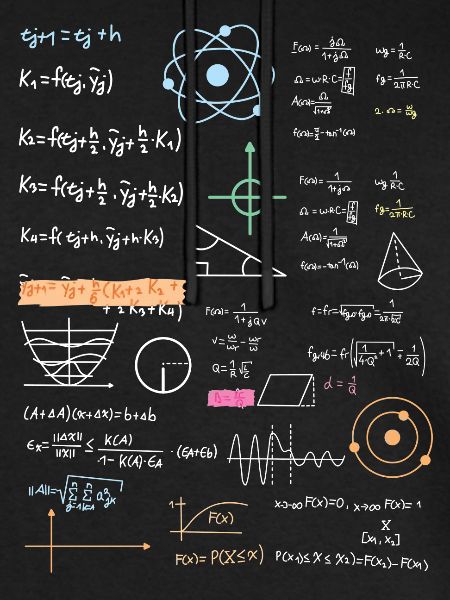 tⱼ₊₁ = tⱼ + h
K₁ = f(tⱼ, ỹⱼ)
K₂ = f(tⱼ + h/2, ỹⱼ + h/2·K₁)
K₃ = f(tⱼ + h/2, ỹⱼ + h/2·K₂)
K₄ = f(tⱼ + h, ỹⱼ + h·K₃)
ỹⱼ₊₁ = ỹⱼ + h/6 (K₁ + 2 K₂ +
+ 2 K₃ + K₄)
F(Ω) = jΩ/(1 + jΩ)
ωg = 1/(R·C)
Ω = ω·R·C = f/fg
fg = 1/(2π·R·C)
A(Ω) = Ω/√(1+Ω²)
2. Ω = ω/ωg
f(Ω) = π/2 - tan⁻¹(Ω)
F(Ω) = 1/(1 + jΩ)
ωg 1/(R·C)
Ω = ω·R·C = f/fg
fg = 1/(2π·R·C)
A(Ω) = 1/√(1+Ω²)
f(Ω) = -tan⁻¹(Ω)
F(Ω) = 1/(1 + jQV)
V = ω/ωr - ωr/ω
Q = 1/R √(L/C)
d = 1/Q
(A + ΔA)(x + Δx) = b + Δb
εx = ||Δx||/||x|| ≤ K(A)/(1 - K(A)·εA) · (εA + εb)
||A|| = √(Σⁿⱼ₌₁ Σⁿₖ₌₁ a²ⱼₖ)
1
F(x)
F(x) = P(X ≤ x)
x→-∞ F(x) = 0, x→∞ F(x) = 1
X
[x₁, x₂]
P(x₁ ≤ X ≤ x₂) = F(x₂) - F(x₁)